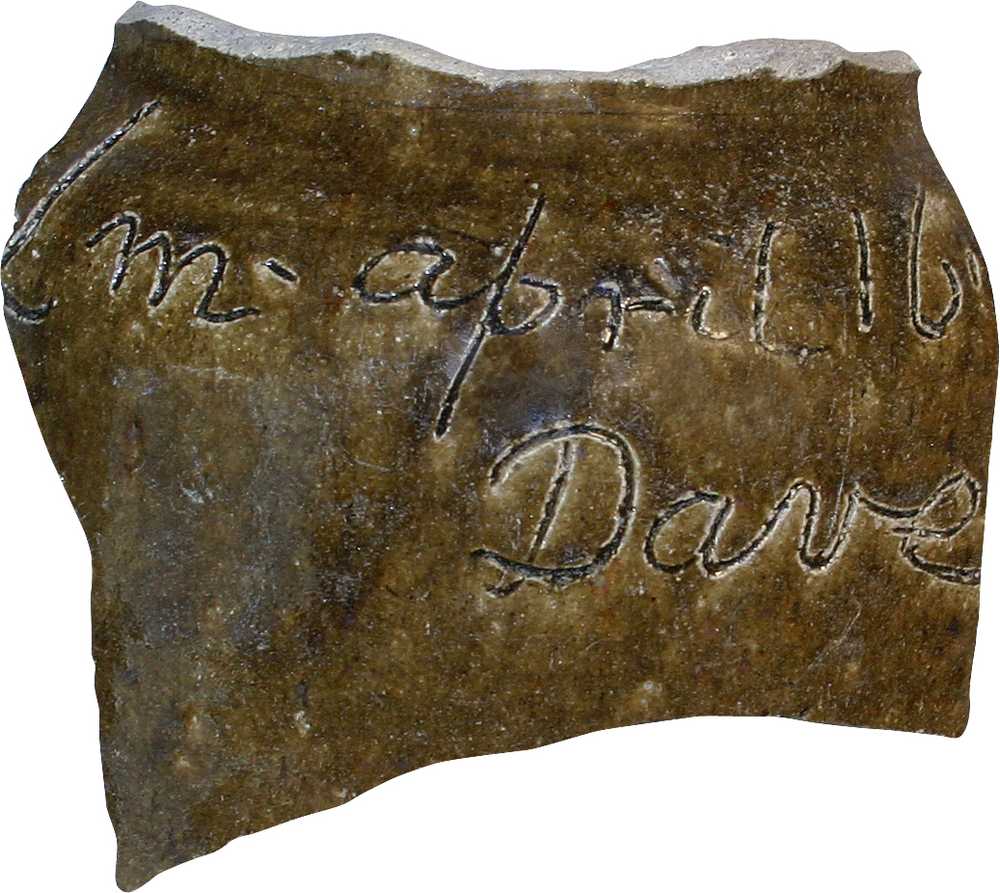 Lm- april 16
Dave